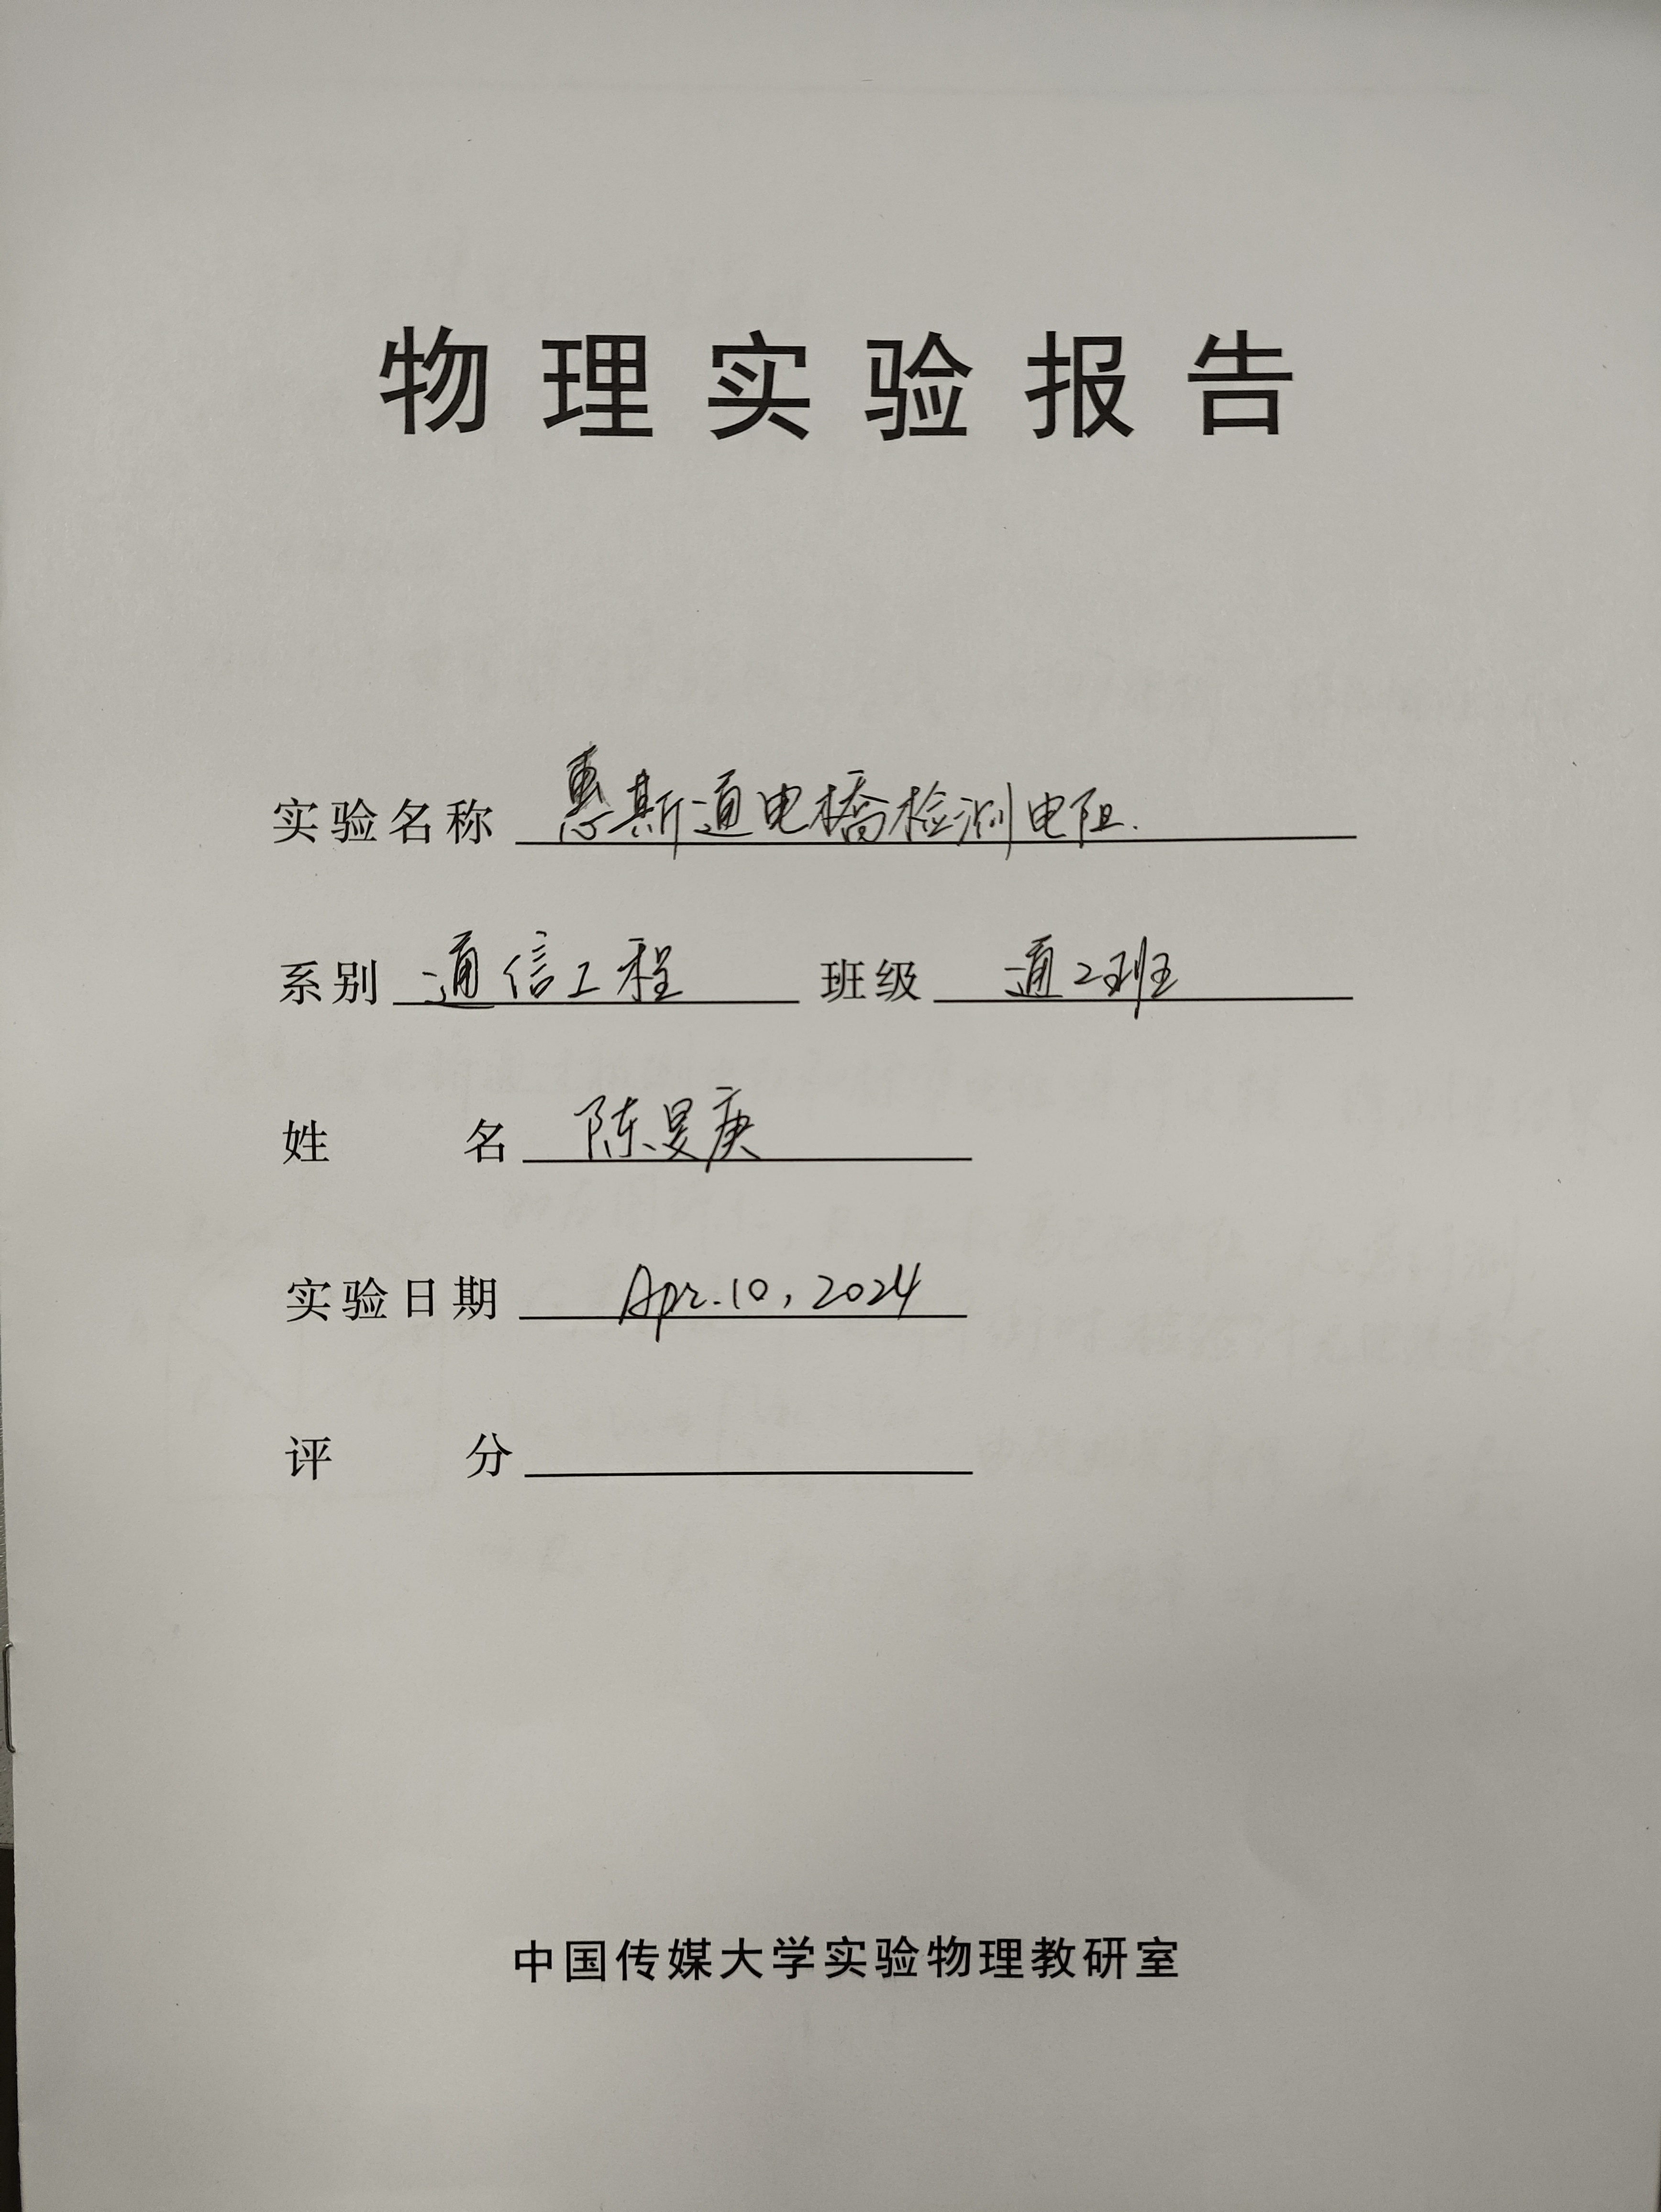 物理实验报告
实验名称 惠斯通电橋检测电阻.
系别 通信工程 班级 通2班
姓名 陈旻庚
实验日期 Apr.10,2024
评分
中国传媒大学实验物理教研室